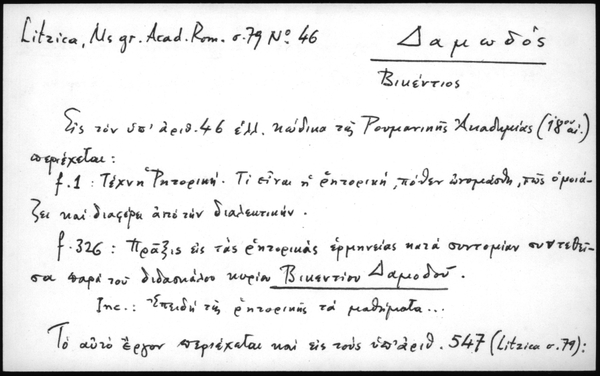 Litzica, Ms gr. Acad. Rom. σ. 79 Nº 46
Δαμωδὸς
Βικέντιος
Εἰς τὸν ὑπ' ἀριθ. 46 ἑλλ. κώδικα τῆς Ρουμανικῆς Ἀκαδημίας (18ου αἰ.)
περιέχεται:
f. 1 : Τέχνη Ῥητορική. Τί εἶναι ἡ ῥητορική, πόθεν ὠνομάσθη, πῶς ὁμοιά-
ζει καὶ διαφέρει ἀπὸ τὴν διαλεκτικήν.
f. 326 : Πρᾶξις εἰς τὰς ῥητορικὰς ἑρμηνείας κατὰ συντομίαν συντεθεῖ-
σα παρὰ τοῦ διδασκάλου κυρίου Βικεντίου Δαμοδοῦ.
Inc.: Ἐπειδὴ τῆς ῥητορικῆς τὰ μαθήματα...
Τὸ αὐτὸ ἔργον περιέχεται καὶ εἰς τοὺς ὑπ' ἀριθ. 547 (Litzica σ. 79):